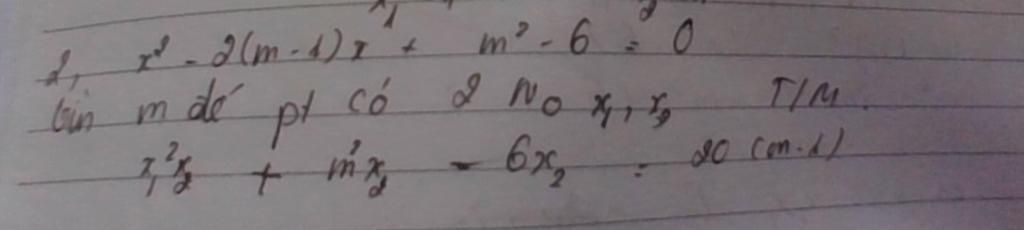 2, x² - 2(m-1)x + m² - 6 = 0
tìm m để pt có 2 No x₁, x₂ T/M
x₁²x₂ + m²x₂ - 6x₂ = 20(m-1)